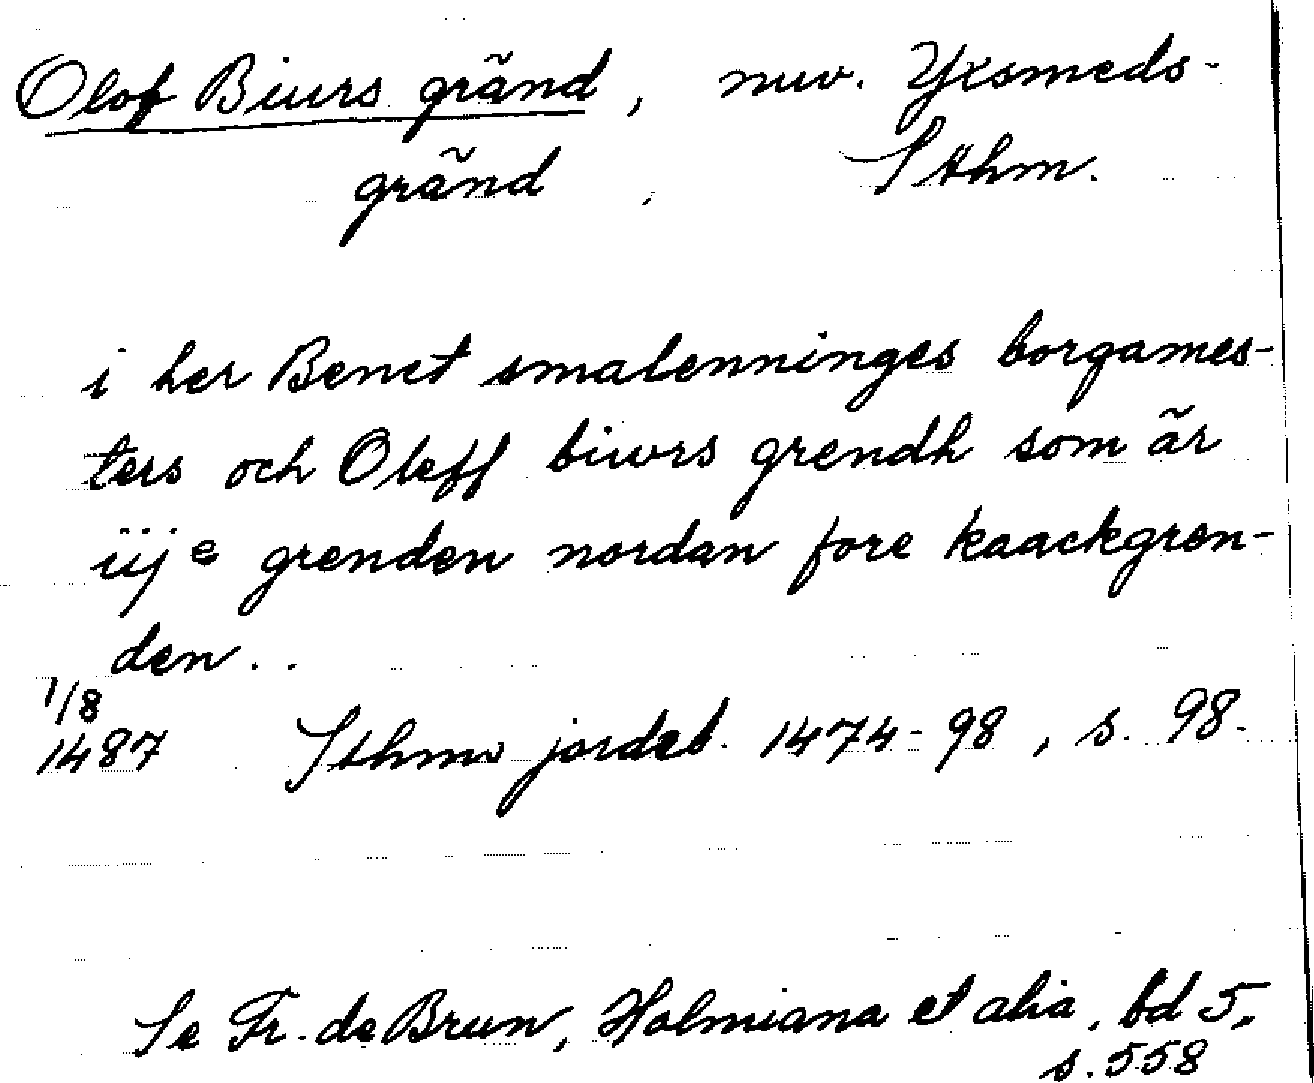 Olof Biurs gränd, nuv. Yxsmeds-
gränd, Sthm.
i her Benct smalenninges borgames-
ters och Oleff biwrs grendh som är
iij e grenden nordan fore kaackgren-
den..
1/8
1487 Sthms jordeb. 1474-98, s. 98.
Se Fr. de Brun, Holmiana et alia, bd 5,
s. 558